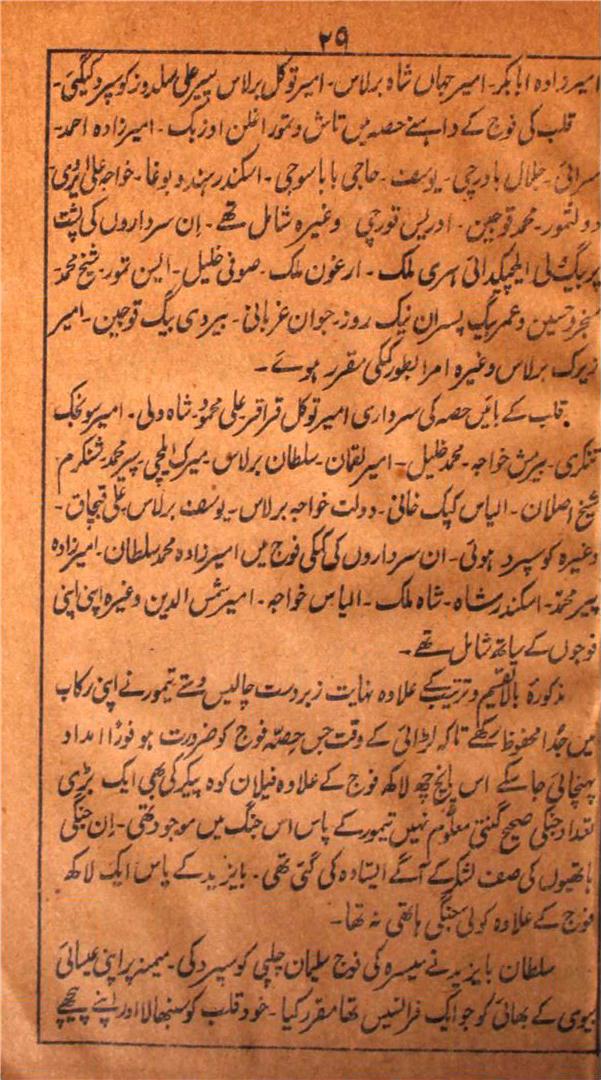 ۲۹
امیرزادہ ابابکر۔ امیر جہاں شاہ برلاس۔ امیر توکل برلاس پیر علی سلدوز کو سپرد کیگئی۔
قلب کی فوج کے داہنے حصہ میں تاش وتمور اغلن اوزبک۔ امیرزادہ احمد۔
سرائی۔ جلال باورچی۔ یوسف۔ حاجی بابا سوجی۔ اسکندر ہندو بوغا۔ خواجہ علی یزدی
دولتمور۔ محمد قوجین۔ ادریس قورچی وغیرہ شامل تھے۔ اِن سرداروں کی پشت
پر بیگ لی ایلچیکدائی ہری ملک۔ ارغون ملک۔ صوفی خلیل۔ الیسن تمور۔ شیخ محمد
سنجر وحسین وعمر بیگ پسران نیک روز۔ جوان غربانی۔ بیردی بیگ قوچین۔ امیر
زیرک برلاس وغیرہ امرا بطور کمکی مقرر ہوئے۔
قلب کے بائیں حصہ کی سرداری امیر توکل قراقر علی محمود۔ شاہ ولی۔ امیر سونجک
تنکری۔ بیرمش خواجہ۔ محمد خلیل۔ امیر لقمان۔ سلطان برلاس۔ میرک ایلچی پیر محمد شنکرم۔
شیخ اصلان۔ الیاس کپک خانی۔ دولت خواجہ برلاس۔ یوسف برلاس علی قبچاق۔
وغیرہ کو سپرد ہوئی۔ ان سرداروں کی کمکی فوج میں امیرزادہ محمد سلطان۔ امیرزادہ
پیر محمد۔ اسکندر شاہ۔ شاہ ملک۔ الیاس خواجہ۔ امیر شمس الدین وغیرہ اپنی اپنی
فوجوں کے ساتھ شامل تھے۔
مذکورۂ بالا تقسیم وترتیب کے علاوہ نہایت زبردست چالیس دستے تیمور نے اپنی رکاب
میں جُدا محفوظ رکھے تاکہ لڑائی کے وقت جس حصّہ فوج کو ضرورت ہو فوراً امداد
پہنچائی جاسکے اس پانچ چھ لاکھ فوج کے علاوہ فیلان کوہ پیکر کی بھی ایک بڑی
تعداد جنکی صحیح گنتی معلوم نہیں تیمور کے پاس اس جنگ میں موجود تھی۔ اِن جنگی
ہاتھیوں کی صف لشکر کے آگے ایستادہ کی گئی تھی۔ بایزید کے پاس ایک لاکھ
فوج کے علاوہ کوئی جنگی ہاتھی نہ تھا۔
سلطان بایزید نے میسرہ کی فوج سلیمان چلپی کو سپرد کی۔ میمنہ پر اپنی عیسائی
بیوی کے بھائی کو جو ایک فرانسیس تھا مقرر کیا۔ خود قلب کو سنبھالا اور اپنے پیچھے